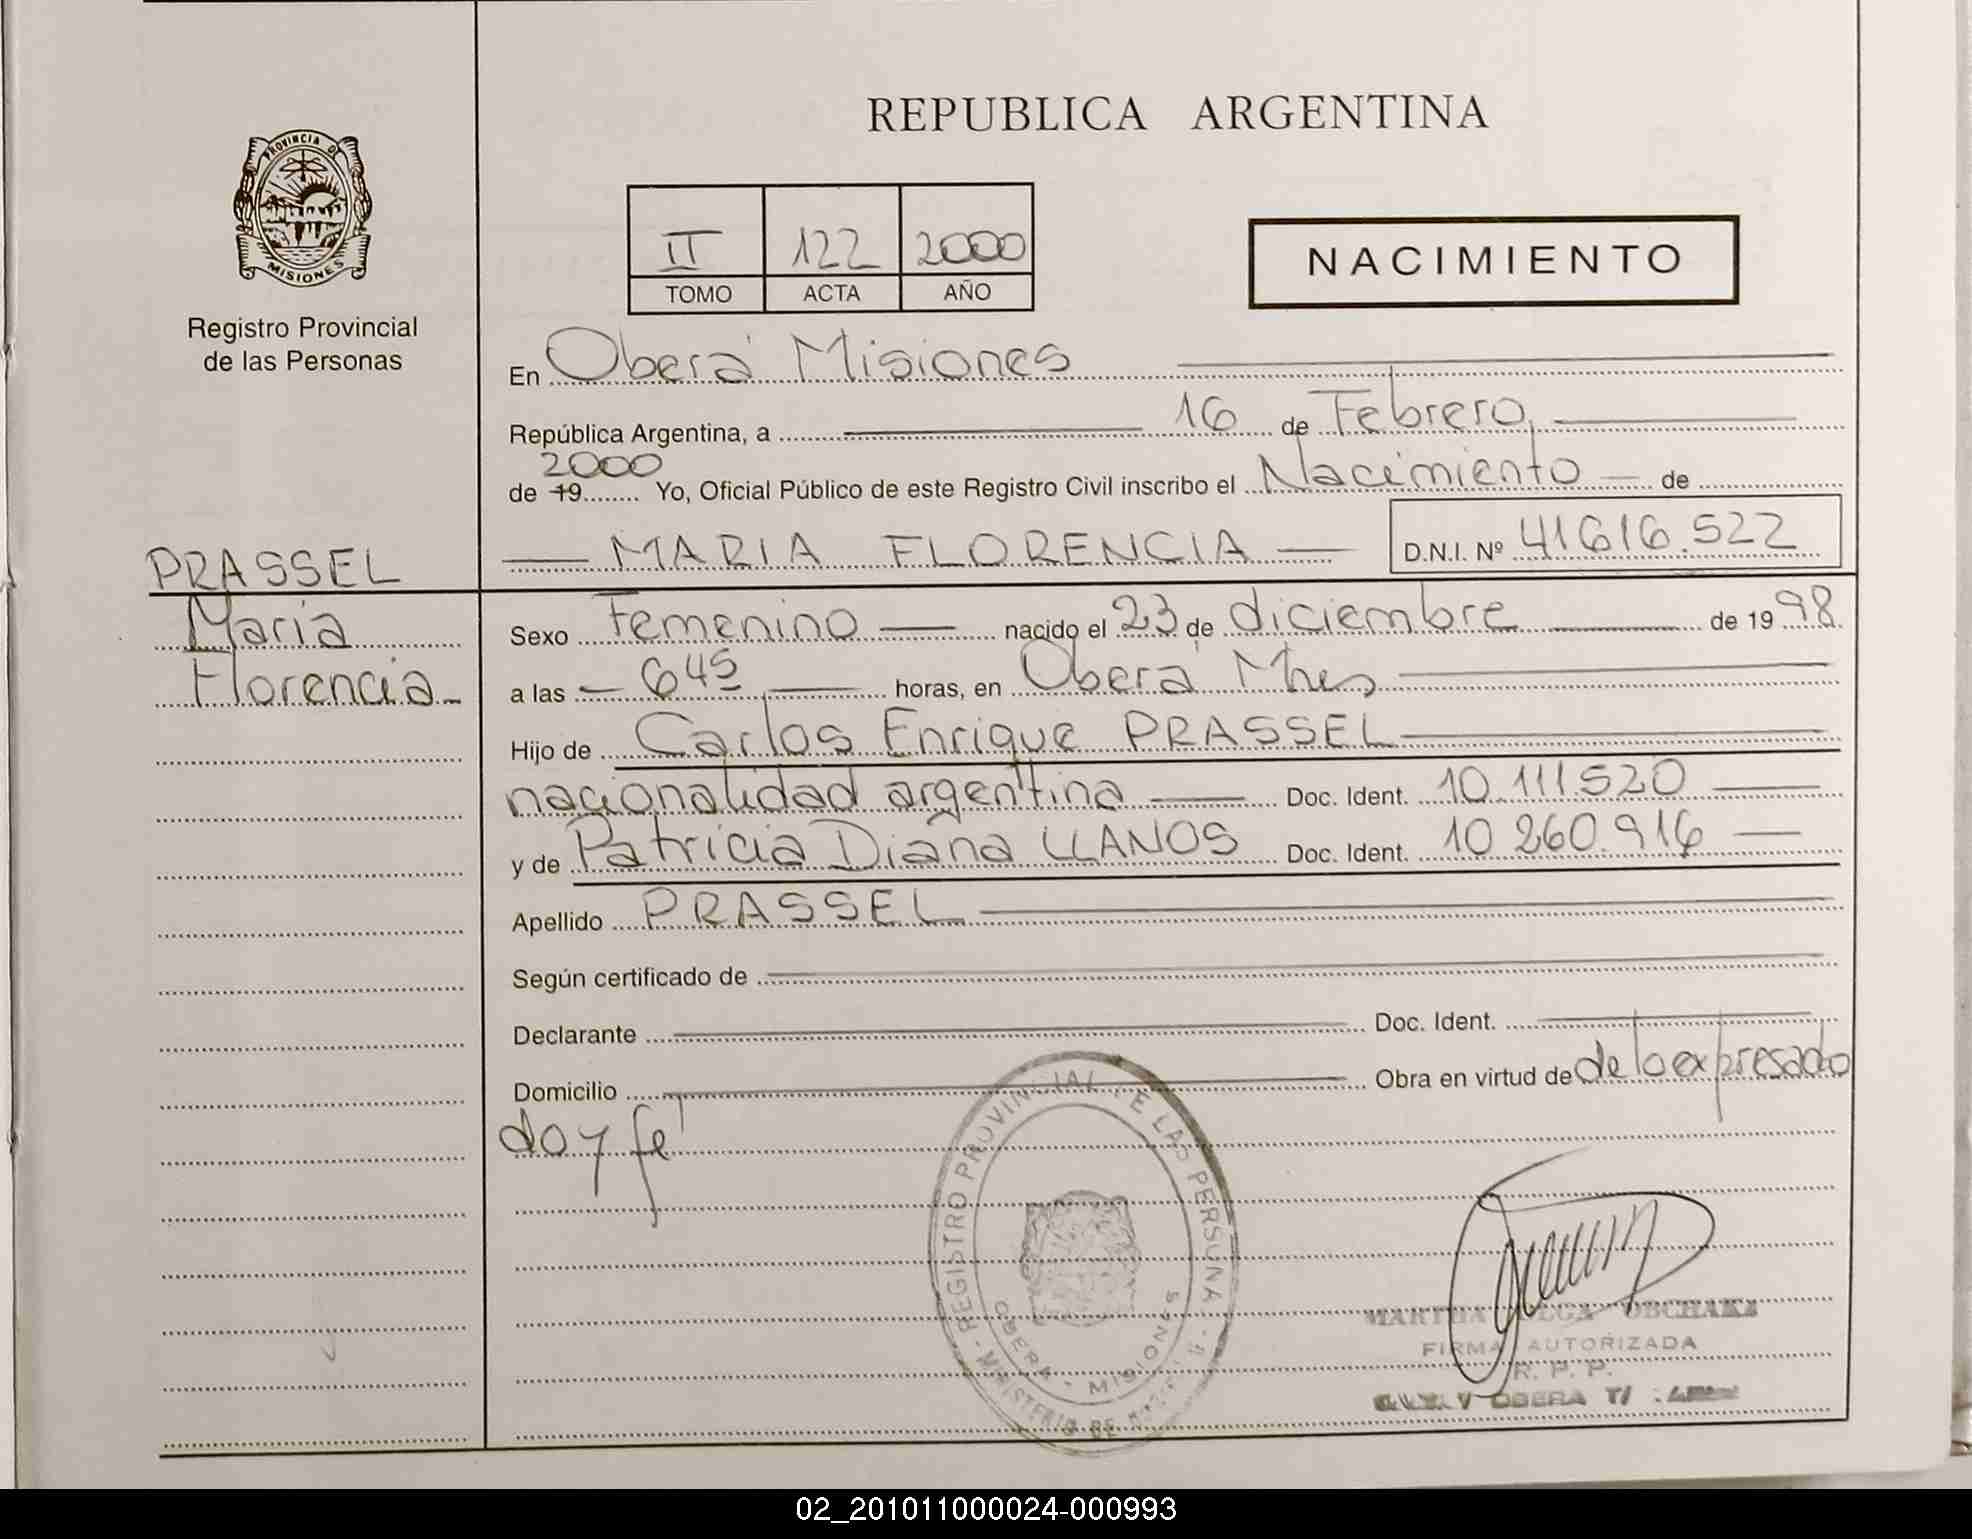 REPUBLICA ARGENTINA
PROVINCIA DE
MISIONES
Registro Provincial
de las Personas
II 122 2000
TOMO ACTA AÑO
NACIMIENTO
En Oberá Misiones
República Argentina, a 16 de Febrero,
2000
de 19 Yo, Oficial Público de este Registro Civil inscribo el Nacimiento de
MARIA FLORENCIA D.N.I. Nº 41616.522
PRASSEL
Maria
Florencia
Sexo Femenino nacido el 23 de diciembre de 19 98.
a las 6 45 horas, en Oberá Mnes
Hijo de Carlos Enrique PRASSEL
nacionalidad argentina Doc. Ident. 10.111.520
y de Patricia Diana LLANOS Doc. Ident. 10 260.916
Apellido PRASSEL
Según certificado de
Declarante Doc. Ident.
Domicilio Obra en virtud de de lo expresado
doy fé
REGISTRO PROVINCIAL DE LAS PERSONAS
MINISTERIO DE
OBERA - MISIONES
MARTHA OLGA OBCHAKA
FIRMA AUTORIZADA
R. P. P.
OBERA
02_201011000024-000993